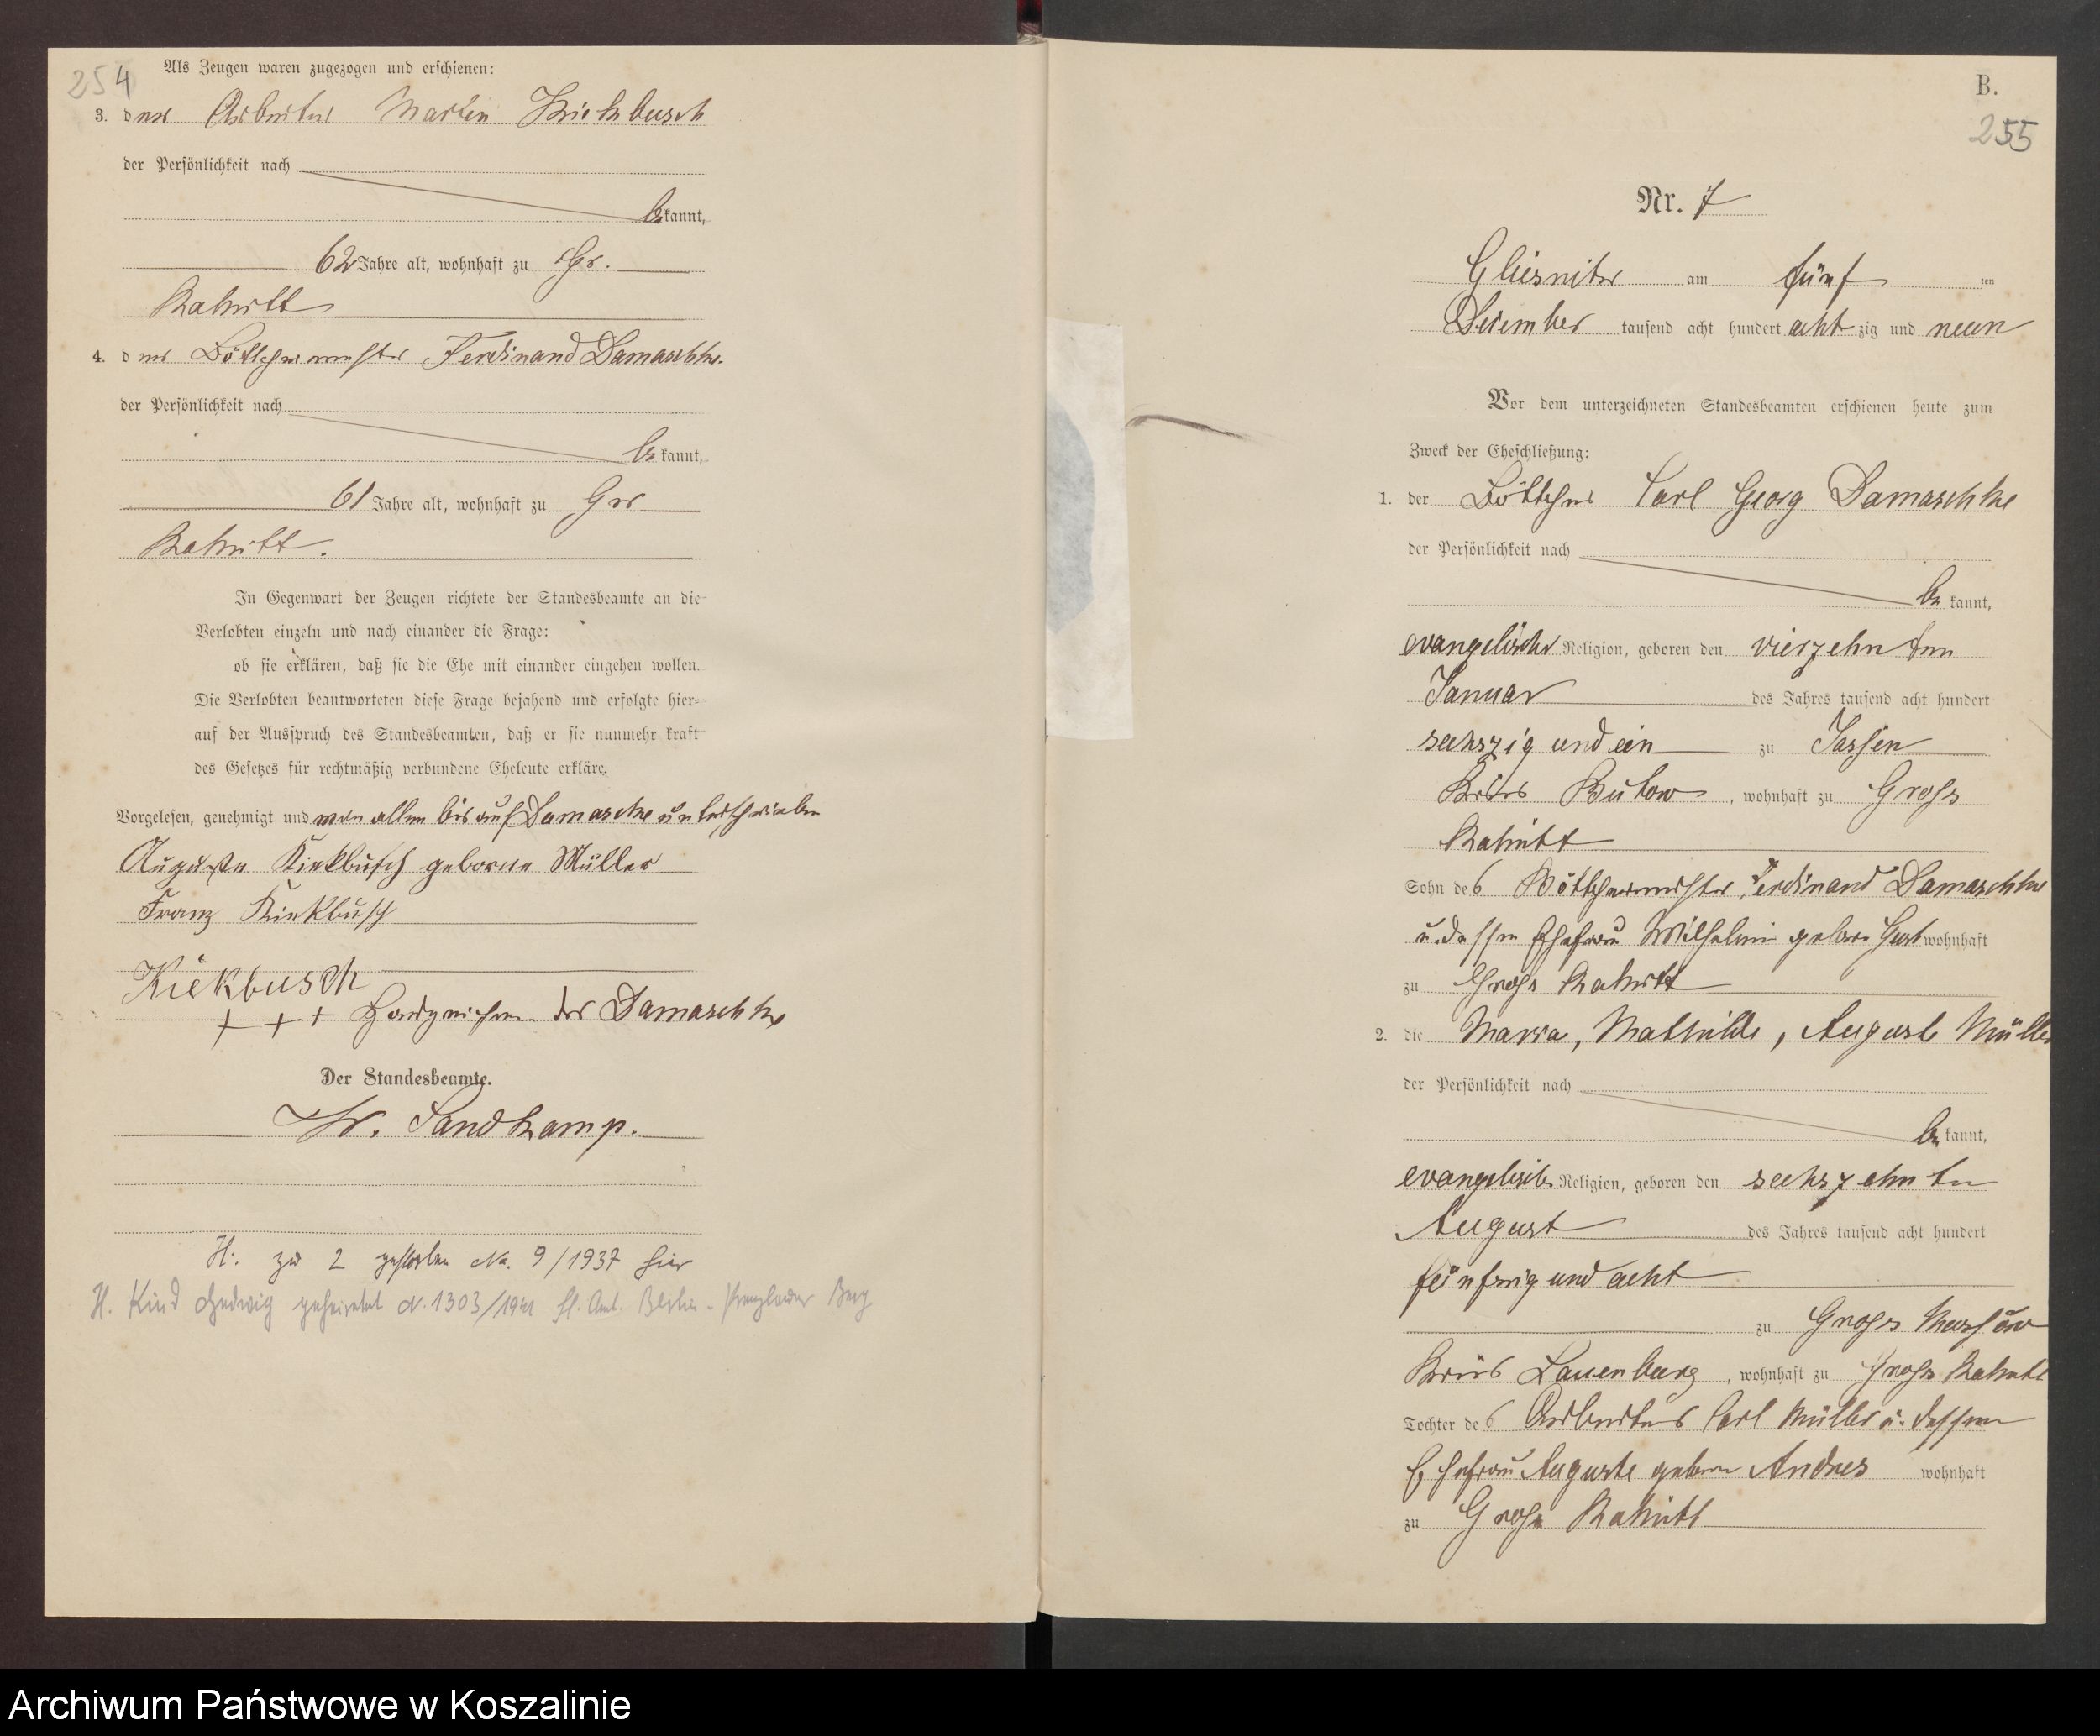 254
Als Zeugen waren zugezogen und erschienen:
3. der Arbeiter Martin Kiekbusch
der Persönlichkeit nach
bekannt,
62 Jahre alt, wohnhaft zu Gr.
Rakitt
4. der Böttchermeister Ferdinand Damaschke.
der Persönlichkeit nach
bekannt,
61 Jahre alt, wohnhaft zu Gr
Rakitt.
In Gegenwart der Zeugen richtete der Standesbeamte an die
Verlobten einzeln und nach einander die Frage:
ob sie erklären, daß sie die Ehe mit einander eingehen wollen.
Die Verlobten beantworteten diese Frage bejahend und erfolgte hier-
auf der Ausspruch des Standesbeamten, daß er sie nunmehr kraft
des Gesetzes für rechtmäßig verbundene Eheleute erkläre.
Vorgelesen, genehmigt und von allen bis auf Damaschke unterschrieben
Auguste Kiekbusch geborene Müller
Franz Kiekbusch
Kiekbusch
+ + + Handzeichen des Damaschke
Der Standesbeamte.
Fr. Sandkamp.
H: zu 2 gestorben No. 9/1937 hier
H. Kind Hedwig geheiratet N. 1303/1941 St. Amt. Berlin - Prenzlauer Berg
B.
255
Nr. 7
Gliesnitz am fünf ten
Dezember tausend acht hundert achtzig und neun
Vor dem unterzeichneten Standesbeamten erschienen heute zum
Zweck der Eheschließung:
1. der Böttcher Carl Georg Damaschke
der Persönlichkeit nach
bekannt,
evangelischer Religion, geboren den vierzehnten
Januar des Jahres tausend acht hundert
sechszig und ein zu Jassen
Kreis Bütow, wohnhaft zu Gross
Rakitt
Sohn des Böttchermeister Ferdinand Damaschke
u. dessen Ehefrau Wilhelmine geborn wohnhaft
zu Gross Rakitt
2. die Maria, Mathilde, Auguste Müller
der Persönlichkeit nach
bekannt,
evangelischer Religion, geboren den sechszehnten
August des Jahres tausend acht hundert
fünfzig und acht
zu Gross Massow
Kreis Lauenburg, wohnhaft zu Gross Rakitt
Tochter des Arbeiters Carl Müller u. dessen
Ehefrau Auguste geborn Andres wohnhaft
zu Gross Rakitt
Archiwum Państwowe w Koszalinie